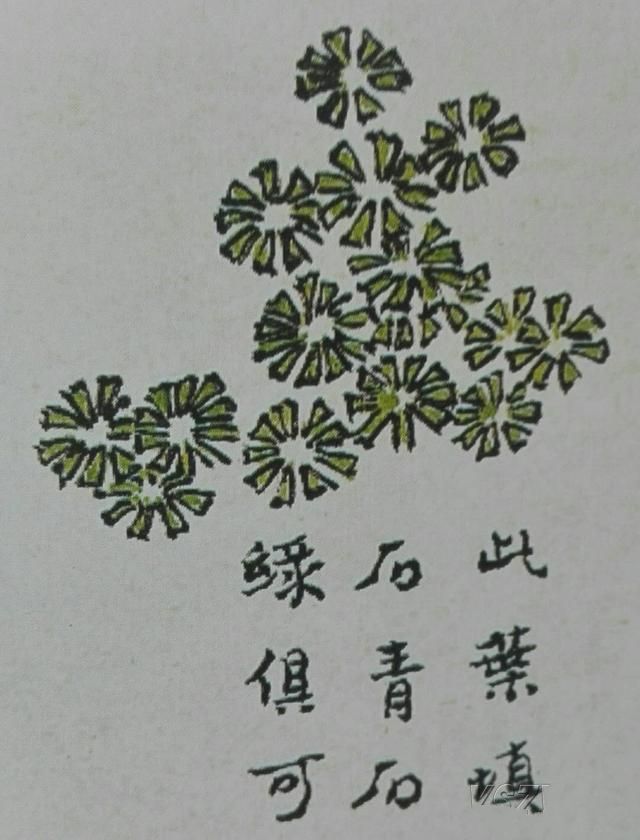 此葉填
石青石
綠俱可